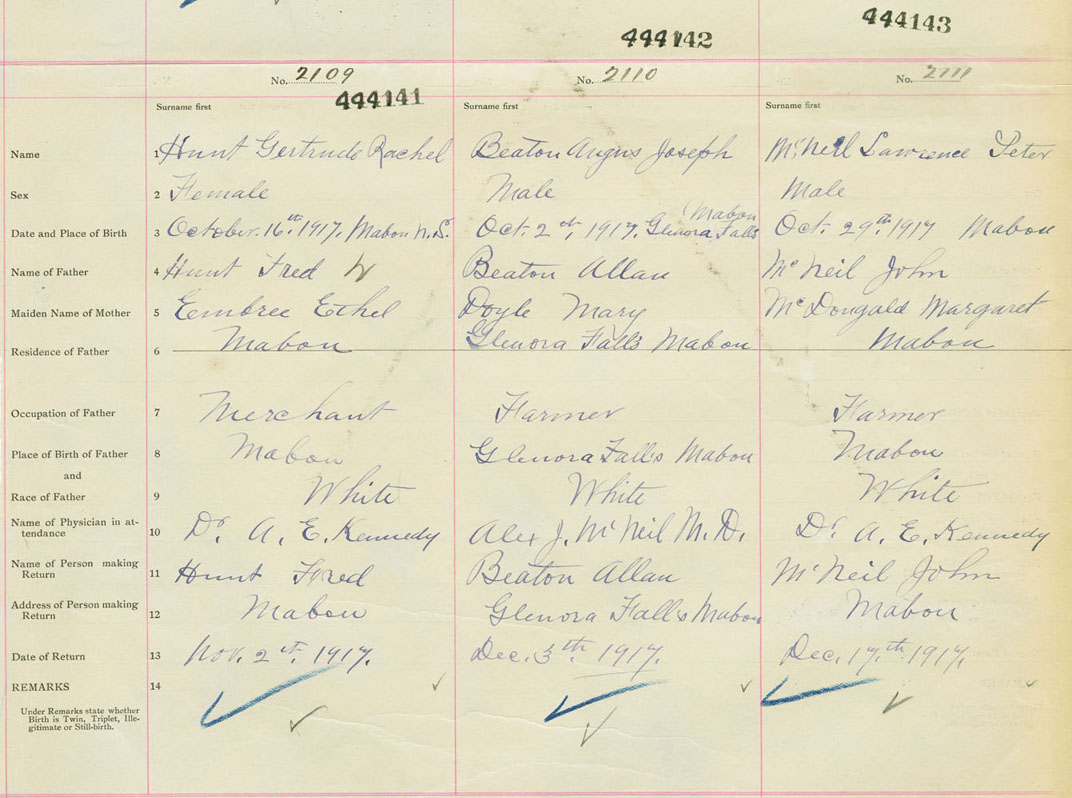 444142
444143
No. 2109
No. 2110
No. 2111
444141
Surname first
Surname first
Surname first
Name 1 Hunt Gertrude Rachel Beaton Angus Joseph McNeil Lawrence Peter
Sex 2 Female Male Male
Mabou
Date and Place of Birth 3 October. 16th 1917. Mabou N.S. Oct. 2nd, 1917. Glenora Falls Oct. 29th 1917 Mabou
Name of Father 4 Hunt Fred Beaton Allan McNeil John
Maiden Name of Mother 5 Eembree Ethel Doyle Mary McDougald Margaret
Residence of Father 6 Mabou Glenora Falls Mabou Mabou
Occupation of Father 7 Merchant Farmer Farmer
Place of Birth of Father 8 Mabou Glenora Falls Mabou Mabou
and
Race of Father 9 White White White
Name of Physician in at-
tendance 10 Dr. A. E. Kennedy Alex J. McNeil M.D. Dr. A. E. Kennedy
Name of Person making
Return 11 Hunt Fred Beaton Allan McNeil John
Address of Person making
Return 12 Mabou Glenora Falls Mabou Mabou
Date of Return 13 Nov. 2nd. 1917. Dec. 3th 1917. Dec. 17th 1917.
REMARKS 14
Under Remarks state whether
Birth is Twin, Triplet, Ille-
gitimate or Still-birth.